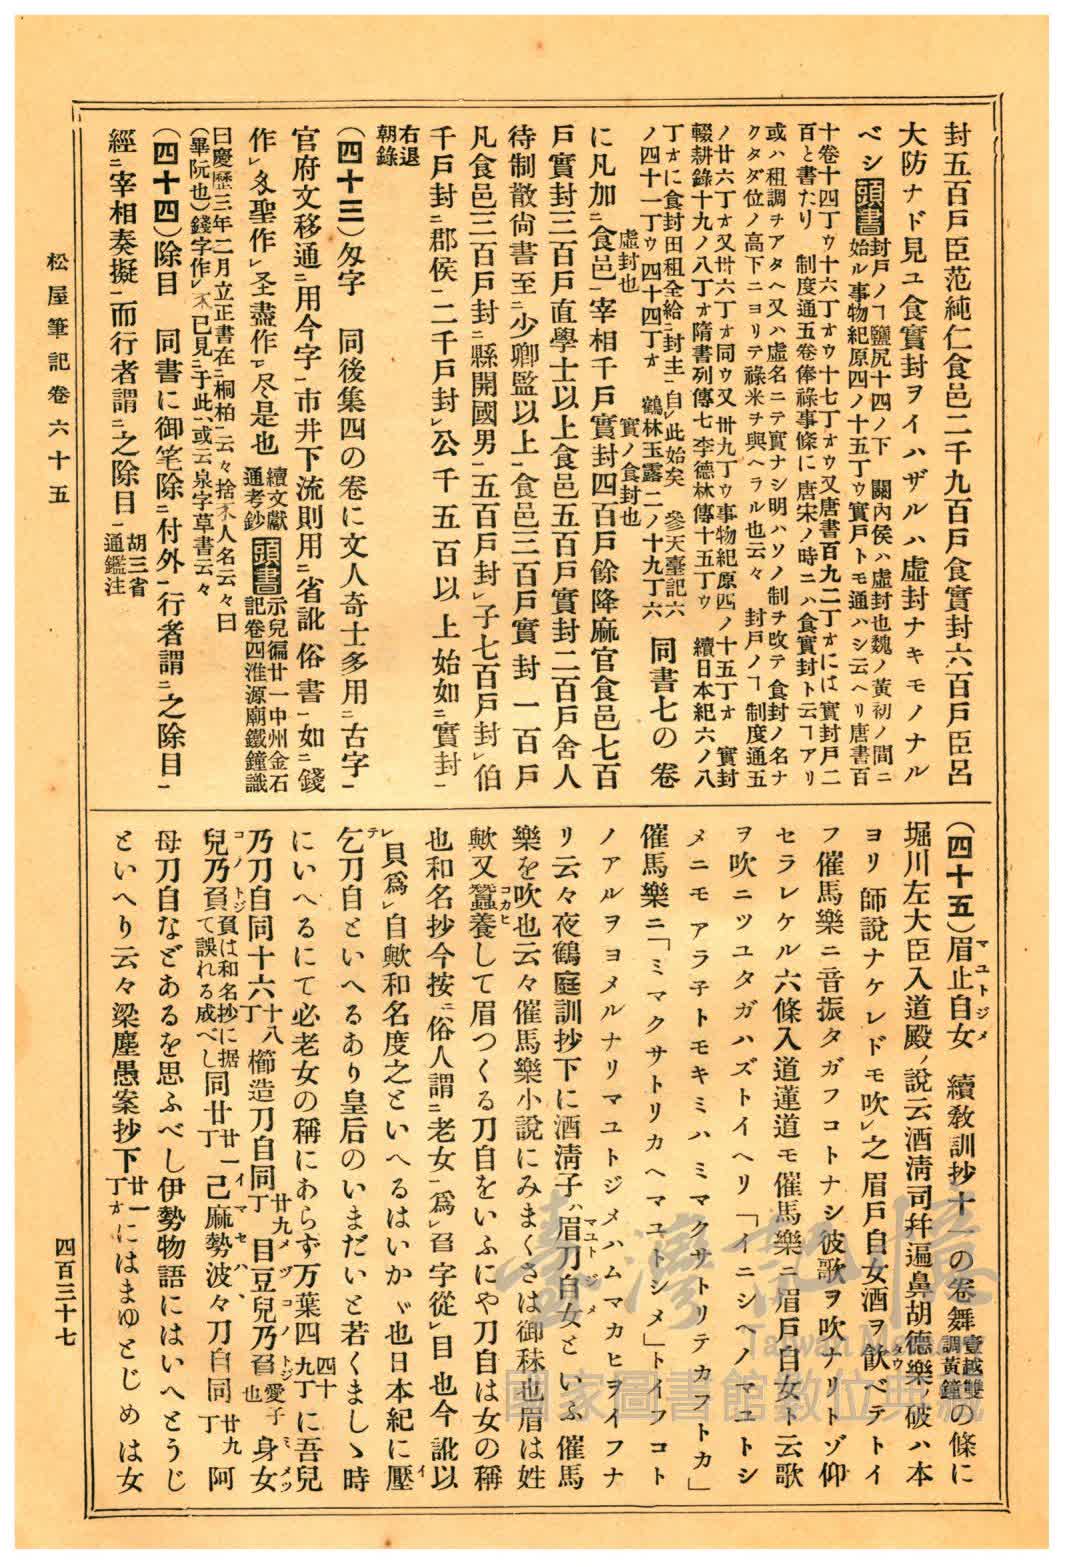 封五百戶臣范純仁食邑二千九百戶食實封六百戶臣呂
大防ナド見ユ食實封ヲイハザルハ虛封ナキモノナル
ベシ頭書封戶ノヿ鹽尻十四ノ下　關內侯ハ虛封也魏ノ黃初ノ間ニ
始ル事物紀原四ノ十五丁ウ實戶トモ通ハシ云ヘリ唐書百
十卷十四丁ウ十六丁オウ十七丁オウ又唐書百九二丁オには實封戶二
百と書たり　制度通五卷俸祿事條に唐宋ノ時ニハ食實封ト云ヿアリ
或ハ租調チアタヘ又ハ虛名ニテ實ナシ明ハソノ制チ改テ食封ノ名ナ
クタダ位ノ高下ニヨリテ祿米チ與ヘラル也云々　封戶ノヿ制度通五
ノ廿六丁オ又丗六丁オ同ウ又丗九丁ウ事物紀原四ノ十五丁オ　實封
輟耕錄十九ノ八丁オ隋書列傳七李德林傳十五丁ウ　續日本紀六ノ八
丁オに食封田租全給ニ封主一自レ此始矣　參天臺記六
ノ四十一丁ウ四十四丁オ　鶴林玉露二ノ十九丁六　同書七の卷
に凡加ニ食邑一宰相千戶實封四百戶餘降麻官食邑七百
虛封也　實ノ食封也
戶實封三百戶直學士以上食邑五百戶實封二百戶舍人
待制散尙書至ニ少卿監以上一食邑三百戶實封一百戶
凡食邑三百戶封ニ縣開國男一五百戶封レ子七百戶封レ伯
千戶封ニ郡侯一二千戶封レ公千五百以上始如ニ實封一
右退
朝錄
（四十三）匁字　同後集四の卷に文人奇士多用ニ古字一
官府文移通ニ用今字一市井下流則用ニ省訛俗書一如ニ錢
作レ匁聖作レ圣盡作レ尽是也　續文獻
通考鈔　頭書示兒徧廿一中州金石
記卷四淮源廟鐵鐘識
曰慶歷三年二月立正書在ニ桐柏一云々捨人名云々曰
（畢阮也）錢字作レ已見ニ于此一、或云泉字草書云々
（四十四）除目　同書に御笔除ニ付外一行者謂ニ之除目一
經ニ宰相奏擬一而行者謂ニ之除目一　胡三省
通鑑注
（四十五）眉止自女マユトジメ　續敎訓抄十一の卷舞壹越雙
調黃鐘の條に
堀川左大臣入道殿ノ說云酒淸司幷遍鼻胡德樂ノ破ハ本
ヨリ師說ナケレドモ吹レ之眉戶自女酒ヲ飮タウベテトイ
フ催馬樂ニ音振タガフコトナシ彼歌ヲ吹ナリトゾ仰
セラレケル六條入道蓮道モ催馬樂ニ眉戶自女ト云歌
ヲ吹ニツユタガハズトイヘリ「イニシヘノマユトシ
メニモアラ子トモキミハミマクサトリテカフトカ」
催馬樂ニ「ミマクサトリカヘマユトシメ」トイフコト
ノアルヲヨメルナリマユトジメハムマカヒヲイフナ
リ云々夜鶴庭訓抄下に酒淸子ハ眉刀自女マユトジメといふ催馬
樂を吹也云々催馬樂小說にみまくさは御秣也眉は姓
歟又蠶養コカヒして眉つくる刀自をいふにや刀自は女の稱
也和名抄今按ニ俗人謂ニ老女一爲レ字從レ目也今訛以
レ貝爲レ自歟和名度之といへるはいかゞ也日本紀に壓イ
乞テ刀自といへるあり皇后のいまだいと若くましゝ時
にいへるにて必老女の稱にあらず万葉四四十
九丁に吾兒
乃刀自同十六十八
丁櫛造刀自同廿九
丁目豆兒乃メヅコノトジ愛子
也身女ミメツ
兒乃負コノトジ負は和名抄に据
て誤れる成べし同廿廿一
丁己麻勢波々刀自イマセハハ同廿九
丁阿
母刀自などあるを思ふべし伊勢物語にはいへとうじ
といへり云々梁塵愚案抄下廿一
丁オにはまゆとじめは女
松屋筆記卷六十五
四百三十七
臺灣記憶
Taiwan Memory
國家圖書館數位典藏